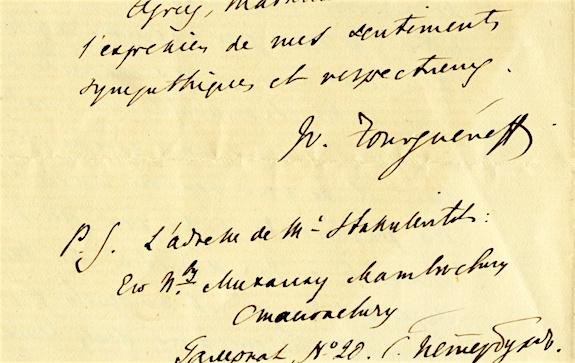 Agréez, Mada
l'expression de mes sentiments
sympathiques et respectueux.
Iv. Tourguéneff
P. S. L'adresse de Mr Stassulevitch:
Его В.
Михаилу Матвеевичу
Стасюлевичу
Галерная, № 20. С. Петербургъ.